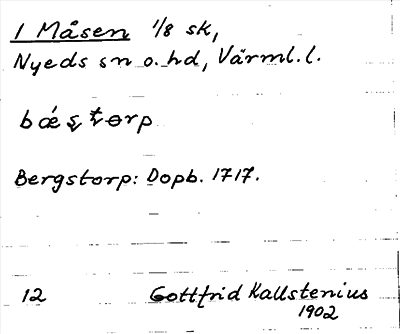 1 Måsen 1/8 sk,
Nyeds sn o. hd, Värml. l.
bǽʂʈorp
Bergstorp: Dopb. 1717.
12 Gottfrid Kallstenius
1902